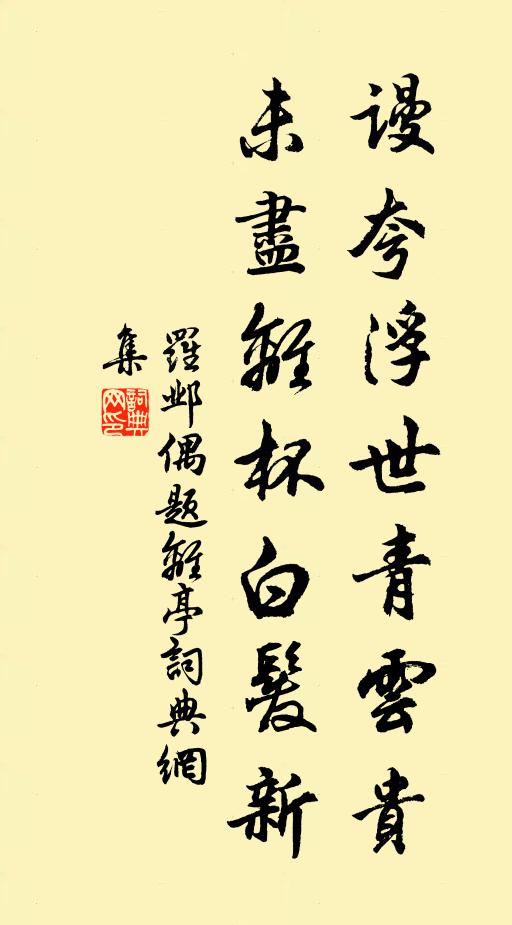 謾夸浮世青雲貴
未盡離杯白髮新
羅邺偶题離亭詞典網
集
詞典
网印